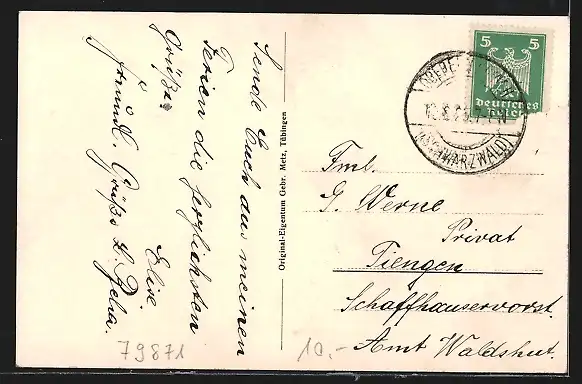 Sende Euch aus meinen
Ferien die herzlichsten
Grüße
Elise.
freundl. Grüße
Original-Eigentum Gebr. Metz, Tübingen
5 5
Deutsches
Reich
(SCHWARZWALD)
Fml.
G. Werne
Privat
Tiengen
Schaffhauservorst.
Amt Waldshut.
79871
10.-